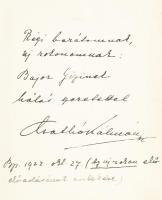 Régi barátomnak,
új rokonomnak:
Bajor Gizinek
hálás szeretettel
Csathó Kálmán
Bp. 1922. okt. 27. (Az új rokon első
előadásának emlékére)